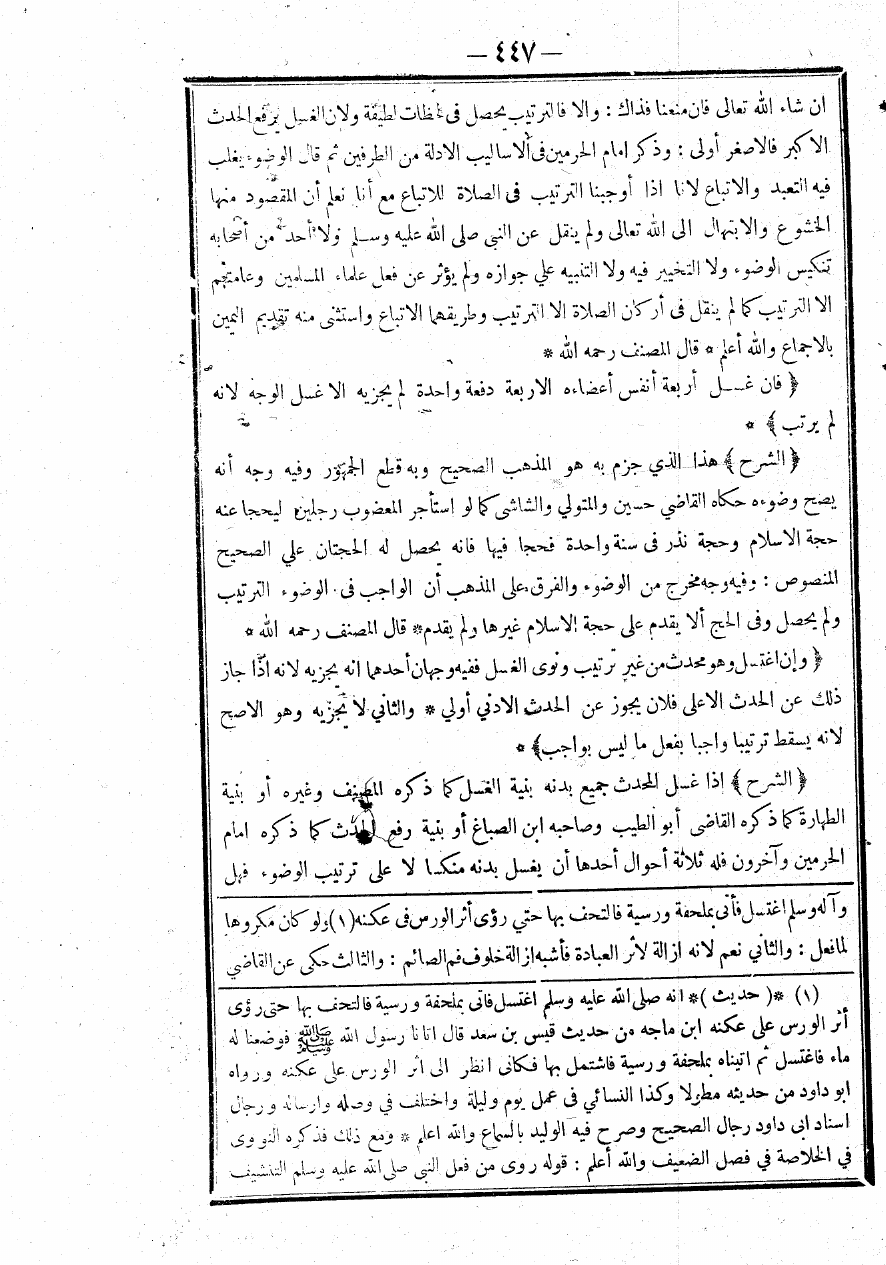 — ٤٤٧ —
ان شاء الله تعالى فان منعنا فذاك : والا فالترتيب يحصل فى لحظات لطيفة ولان الغسل يرفع الحدث
الاكبر فالاصغر أولى : وذكر امام الحرمين فى الاساليب الادلة من الطرفين ثم قال الوضوء يغلب
فيه التعبد والاتباع لانا اذا أوجبنا الترتيب فى الصلاة للاتباع مع أنا نعلم أن المقصود منها
الخشوع والابتهال الى الله تعالى ولم ينقل عن النبي صلى الله عليه وسلم ولا أحد من أصحابه
تنكيس الوضوء ولا التخيير فيه ولا التنبيه علي جوازه ولم يؤثر عن فعل علماء المسلمين وعامتهم
الا الترتيب كما لم ينقل فى أركان الصلاة الا الترتيب وطريقهما الاتباع واستثنى منه تقديم اليمين
بالاجماع والله أعلم * قال المصنف رحمه الله *
﴿ فان غسل أربعة أنفس أعضاءه الاربعة دفعة واحدة لم يجزيه الا غسل الوجه لانه
لم يرتب ﴾ *
﴿ الشرح ﴾ هذا الذي جزم به هو المذهب الصحيح وبه قطع الجمهور وفيه وجه أنه
يصح وضوءه حكاه القاضي حسين والمتولي والشاشى كما لو استأجر المعضوب رجلين ليحجا عنه
حجة الاسلام وحجة نذر فى سنة واحدة فحجا فيها فانه يحصل له الحجتان علي الصحيح
المنصوص : وفيه وجه مخرج من الوضوء والفرق على المذهب أن الواجب فى الوضوء الترتيب
ولم يحصل وفى الحج ألا يقدم على حجة الاسلام غيرها ولم يقدم * قال المصنف رحمه الله *
﴿ وإن اغتسل وهو محدث من غير ترتيب ونوى الغسل ففيه وجهان أحدهما انه يجزيه لانه اذا جاز
ذلك عن الحدث الاعلى فلان يجوز عن الحدث الادني أولي * والثاني لا يجزيه وهو الاصح
لانه يسقط ترتيبا واجبا بفعل ما ليس بواجب ﴾ *
﴿ الشرح ﴾ إذا غسل المحدث جميع بدنه بنية الغسل كما ذكره المصنف وغيره أو بنية
الطهارة كما ذكره القاضى أبو الطيب وصاحبه ابن الصباغ أو بنية رفع الحدث كما ذكره امام
الحرمين وآخرون فله ثلاثة أحوال أحدها أن يغسل بدنه منكسا لا على ترتيب الوضوء فهل
وآله وسلم اغتسل فأتى بملحفة ورسية فالتحف بها حتي رؤى أثر الورس فى عكنه (١) ولو كان مكروها
لما فعل : والثاني نعم لانه ازالة لأثر العبادة فأشبه ازالة خلوف فم الصائم : والثالث حكى عن القاضي
(١) * ( حديث ) * انه صلى الله عليه وسلم اغتسل فاتى بملحفة ورسية فالتحف بها حتى رؤى
أثر الورس على عكنه ابن ماجه من حديث قيس بن سعد قال اتانا رسول الله ﷺ فوضعنا له
ماء فاغتسل ثم اتيناه بملحفة ورسية فاشتمل بها فكانى انظر الى اثر الورس على عكنه ورواه
ابو داود من حديثه مطولا وكذا النسائي فى عمل يوم وليلة واختلف في وصله وارساله ورجال
اسناد ابى داود رجال الصحيح وصرح فيه الوليد بالسماع والله اعلم * ومع ذلك فذكره النووى
في الخلاصة في فصل الضعيف والله أعلم : قوله روى من فعل النبي صلى الله عليه وسلم التنشيف